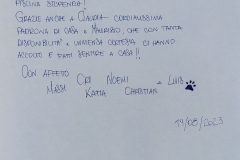 PISCINA STUPENDA!
GRAZIE ANCHE A CLAUDIA CORDIALISSIMA
PADRONA DI CASA E MAURIZIO, CHE CON TANTA
DISPONIBILITÀ E CORTESIA CI HANNO
ACCOLTO E FATTI SENTIRE A CASA!!
CON AFFETTO CRI NOEMI
MASSI KATIA CHRISTIAN + LUIS
19/08/2023